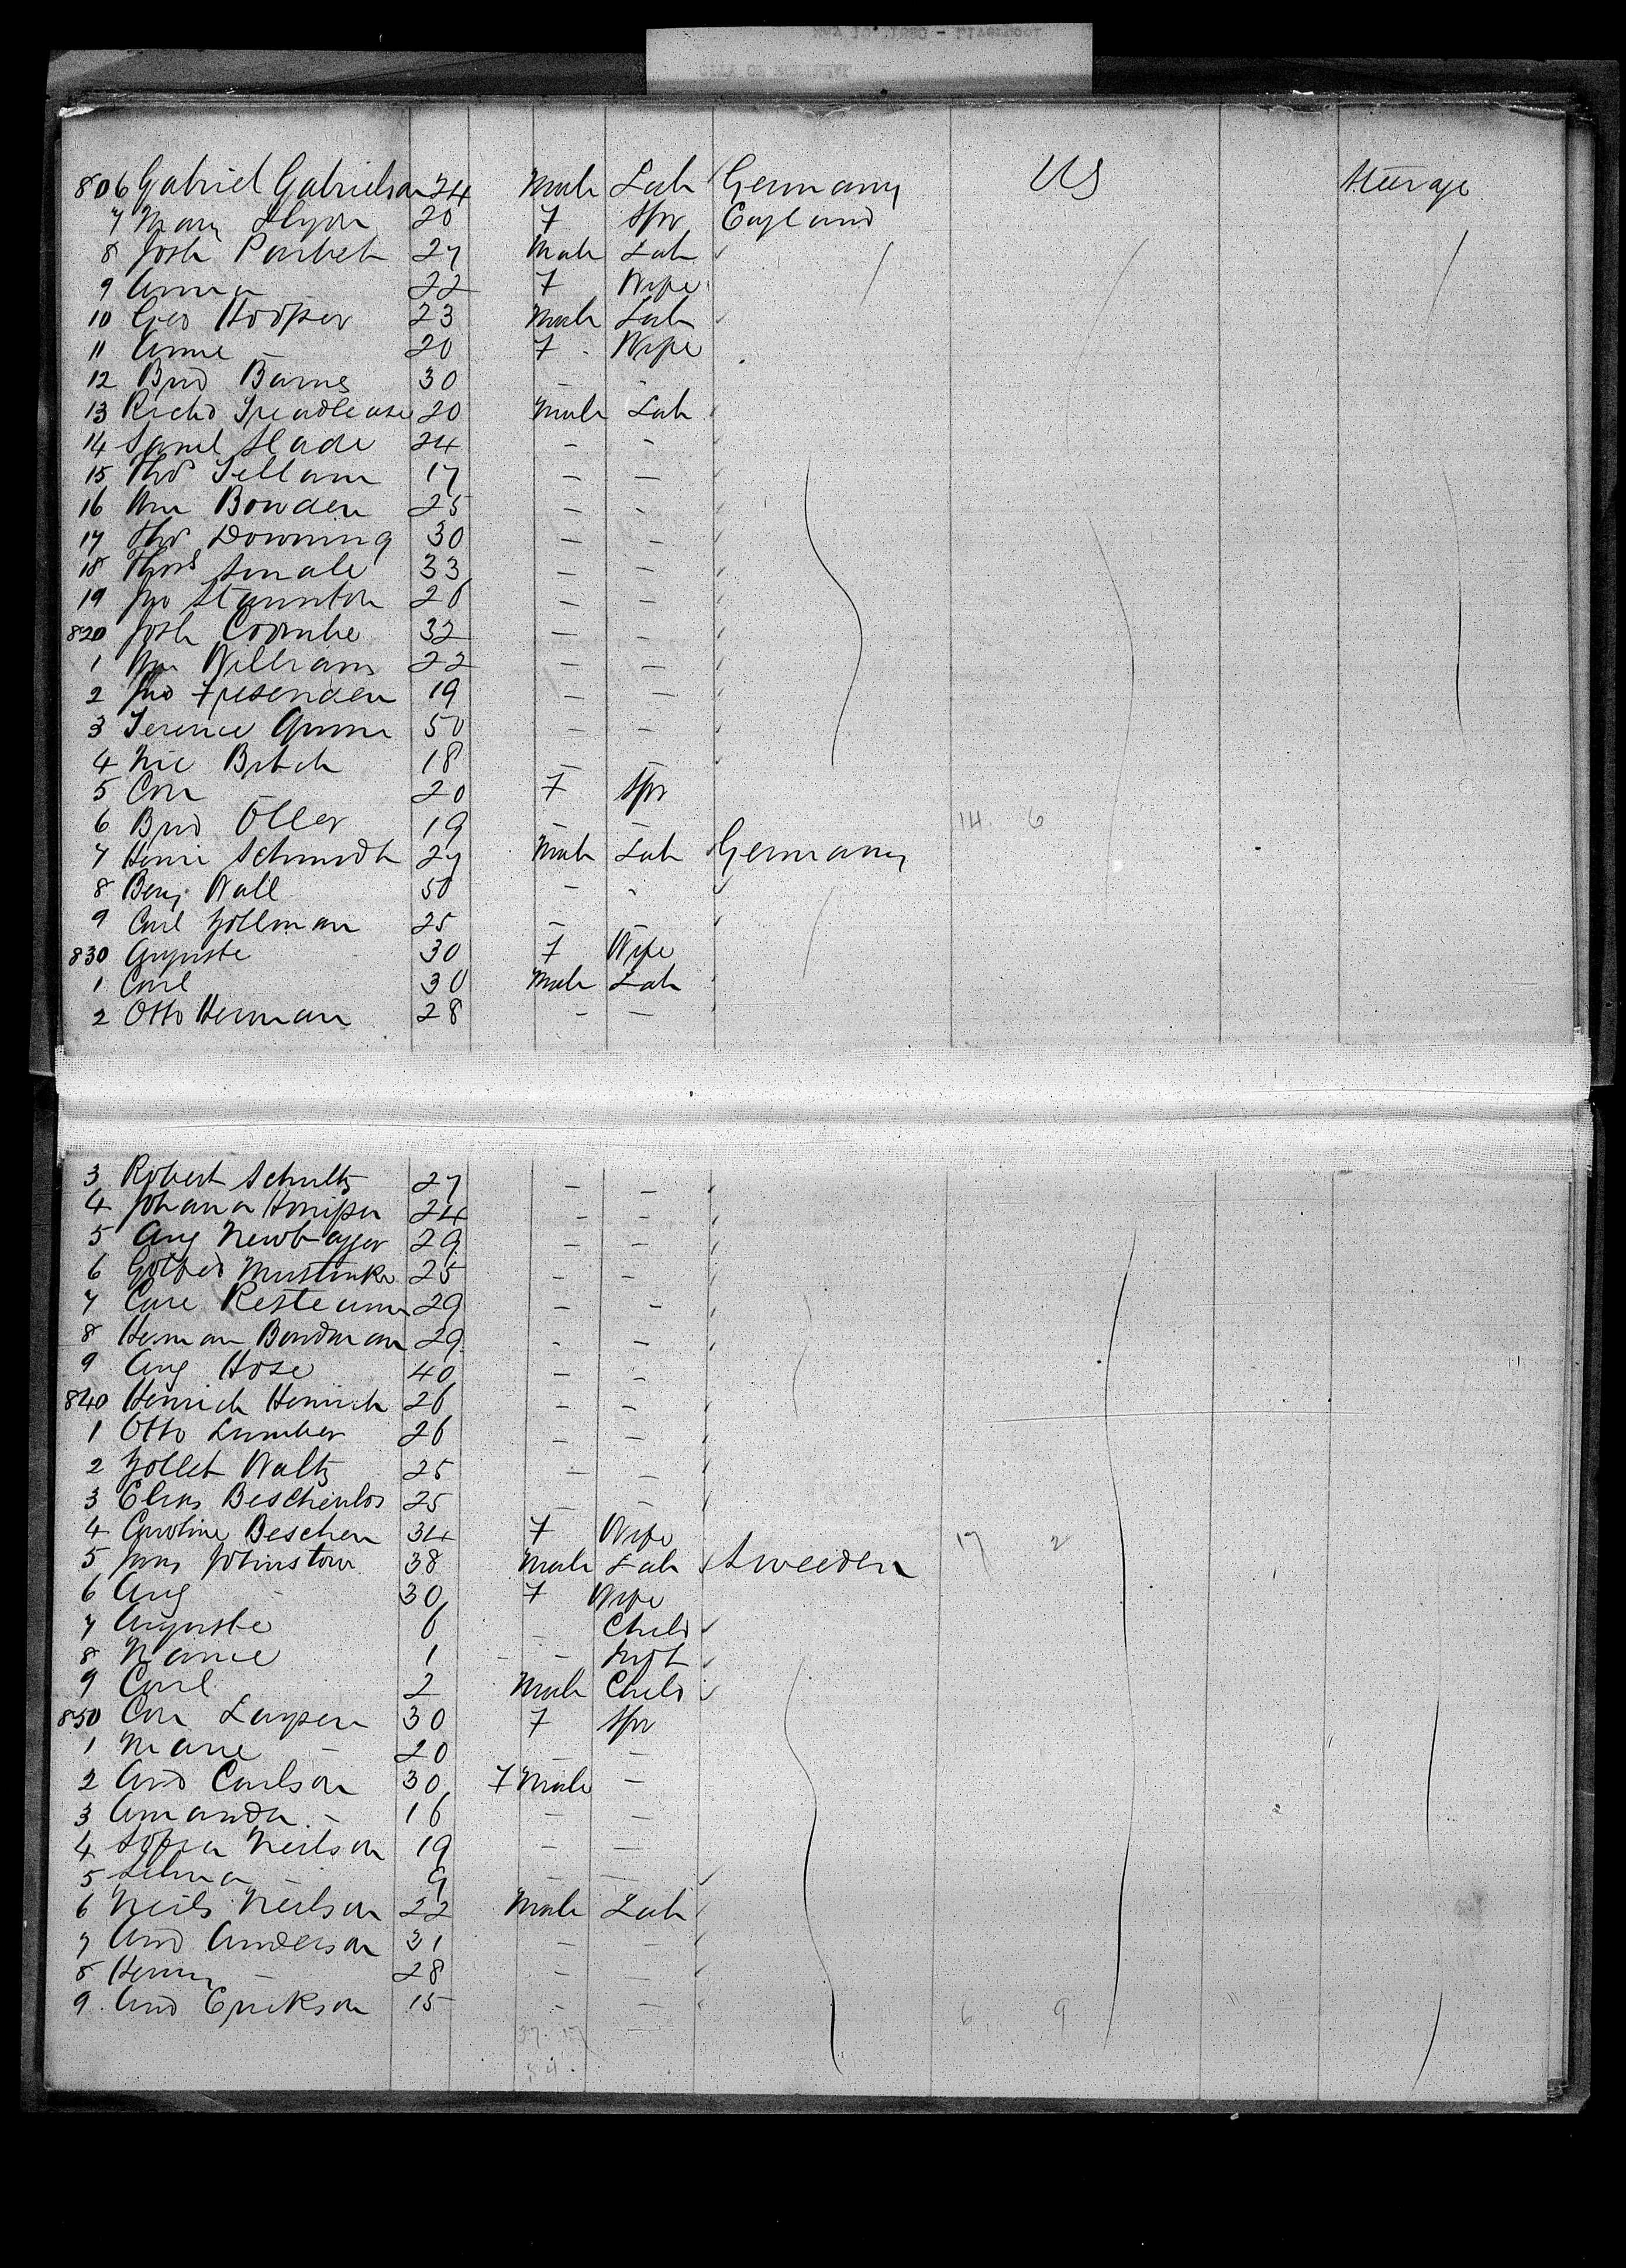 806 Gabriel Gabrielson 24 Male Lab Germany US Steerage
7 Mary 20 F Spr England
8 Josh 27 Male Lab
9 Anna 22 F Wife
10 Geo Hooper 23 Male Lab
11 Annie - 20 F - Wife
12 Brid Barnes 30 - -
13 Richd 20 Male Lab
14 Saml Slade 24 - -
15 Thos 17 - -
16 Wm Bowden 25 - -
17 Thos Downing 30 - -
18 Thos Smale 33 - -
19 Jno Staunton 26 - -
820 Josh Coombe 32 - -
1 Wm William 22 - -
2 Jno 19 - -
3 Terence 50 - -
4 Nic 18 - -
5 - 20 F Spr
6 Brid Oller 19 - - 14. 6
7 Henri Schmidt 27 Male Lab Germany
8 Benj Wall 50 - -
9 Carl Zollman 25 - -
830 Auguste 30 F Wife
1 Carl 30 Male Lab
2 Otto Herman 28 - -
3 Robert Schultz 27 - -
4 Johana 24 - -
5 Aug 29 - -
6 25 - -
7 29 - -
8 Herman 29 - -
9 Aug Hose 40 - -
840 Henrich Henrich 26 - -
1 Otto 26 - -
2 Waltz 25 - -
3 Elias 25 - -
4 Caroline Beschen 34 F Wife
5 Johnstown 38 Male Lab Sweeden 17 2
6 Aug - 30 F Wife
7 Auguste 6 - Child
8 1 - -
9 Carl 2 Male Child
850 30 F Spr
1 Marie - 20 - -
2 And Carlson 30 F Male -
3 Amanda - 16 - -
4 Sofia Neilson 19 - -
5 Selma - 9 - -
6 Neils Neilson 22 Male Lab
7 And Anderson 31 - -
8 - 28 - -
9 And Erickson 15 - - 6 9
37. 17
54.